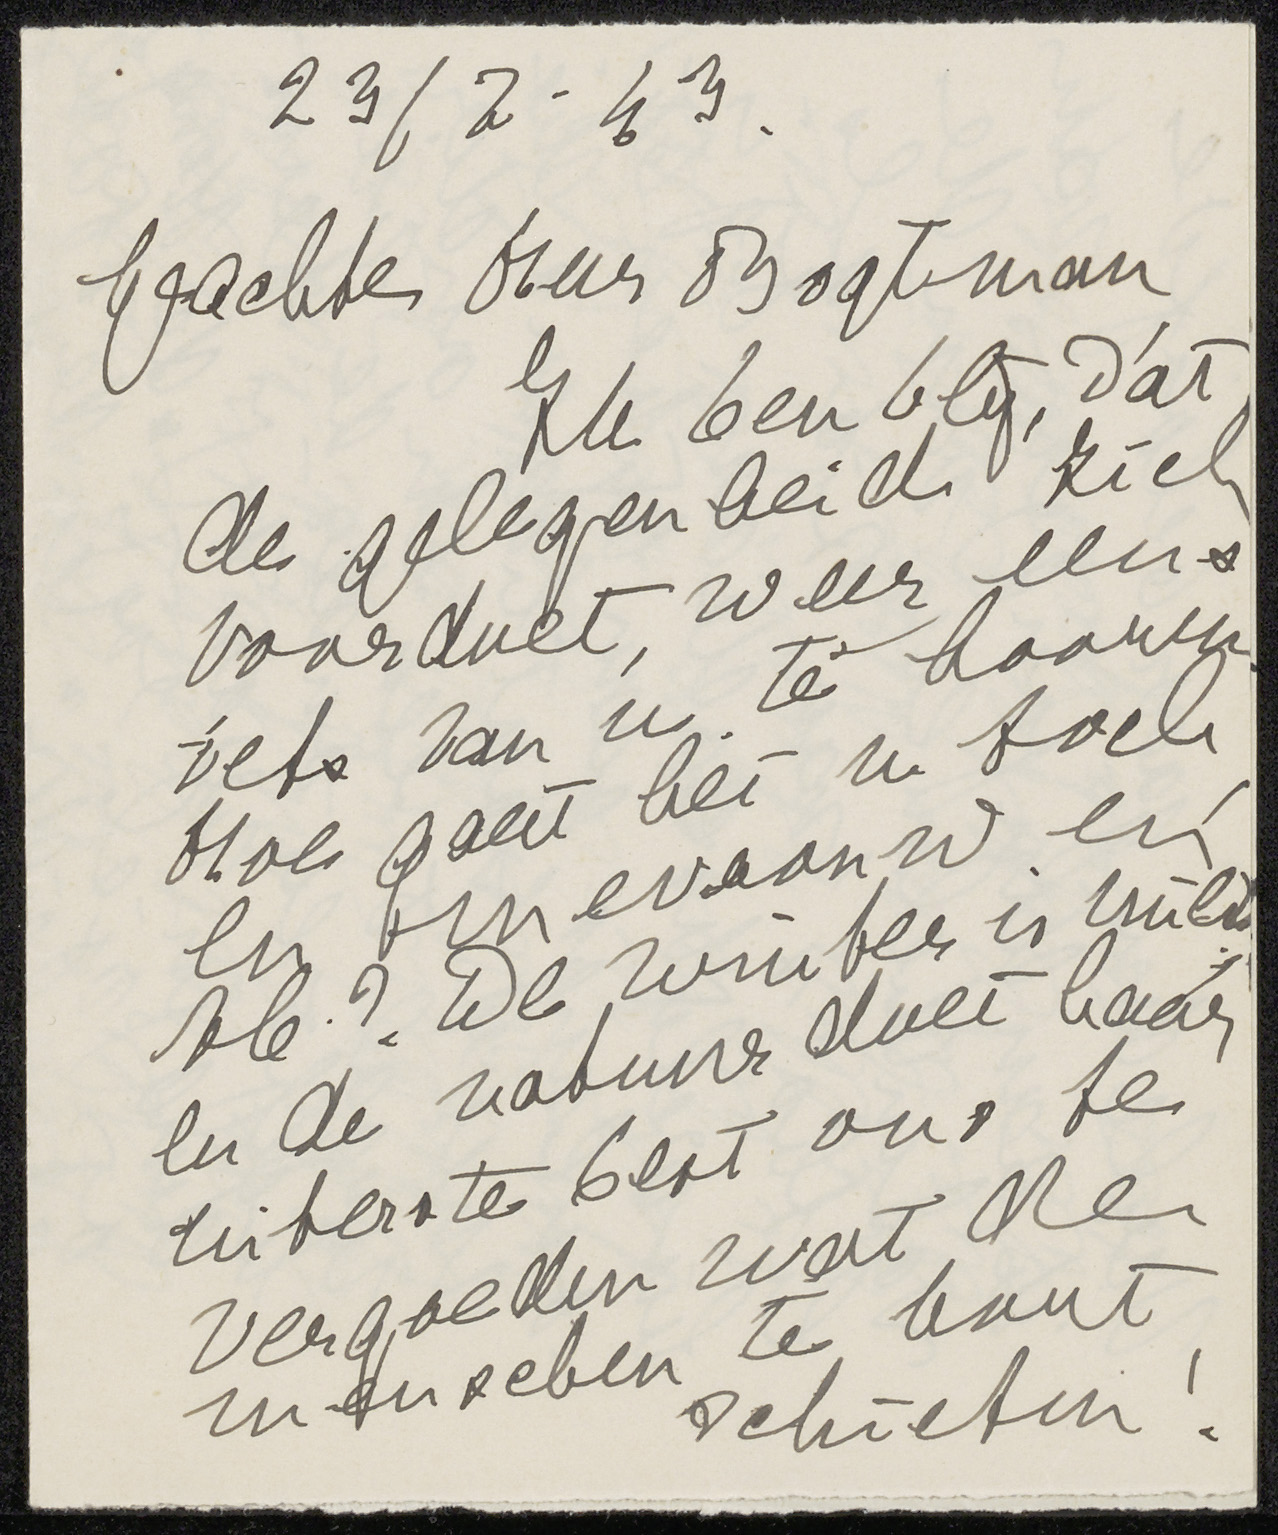 23/2-43.
Geachte Heer Bogtman
Ik ben blij, dat
de gelegenheid zich
voordoet, weer eens
iets van u te hooren.
Hoe gaat het u toch
en mevrouw en
? De winter is mild
en de natuur doet haar
uiterste best ons te
vergoeden wat de
menschen te kort
schieten!